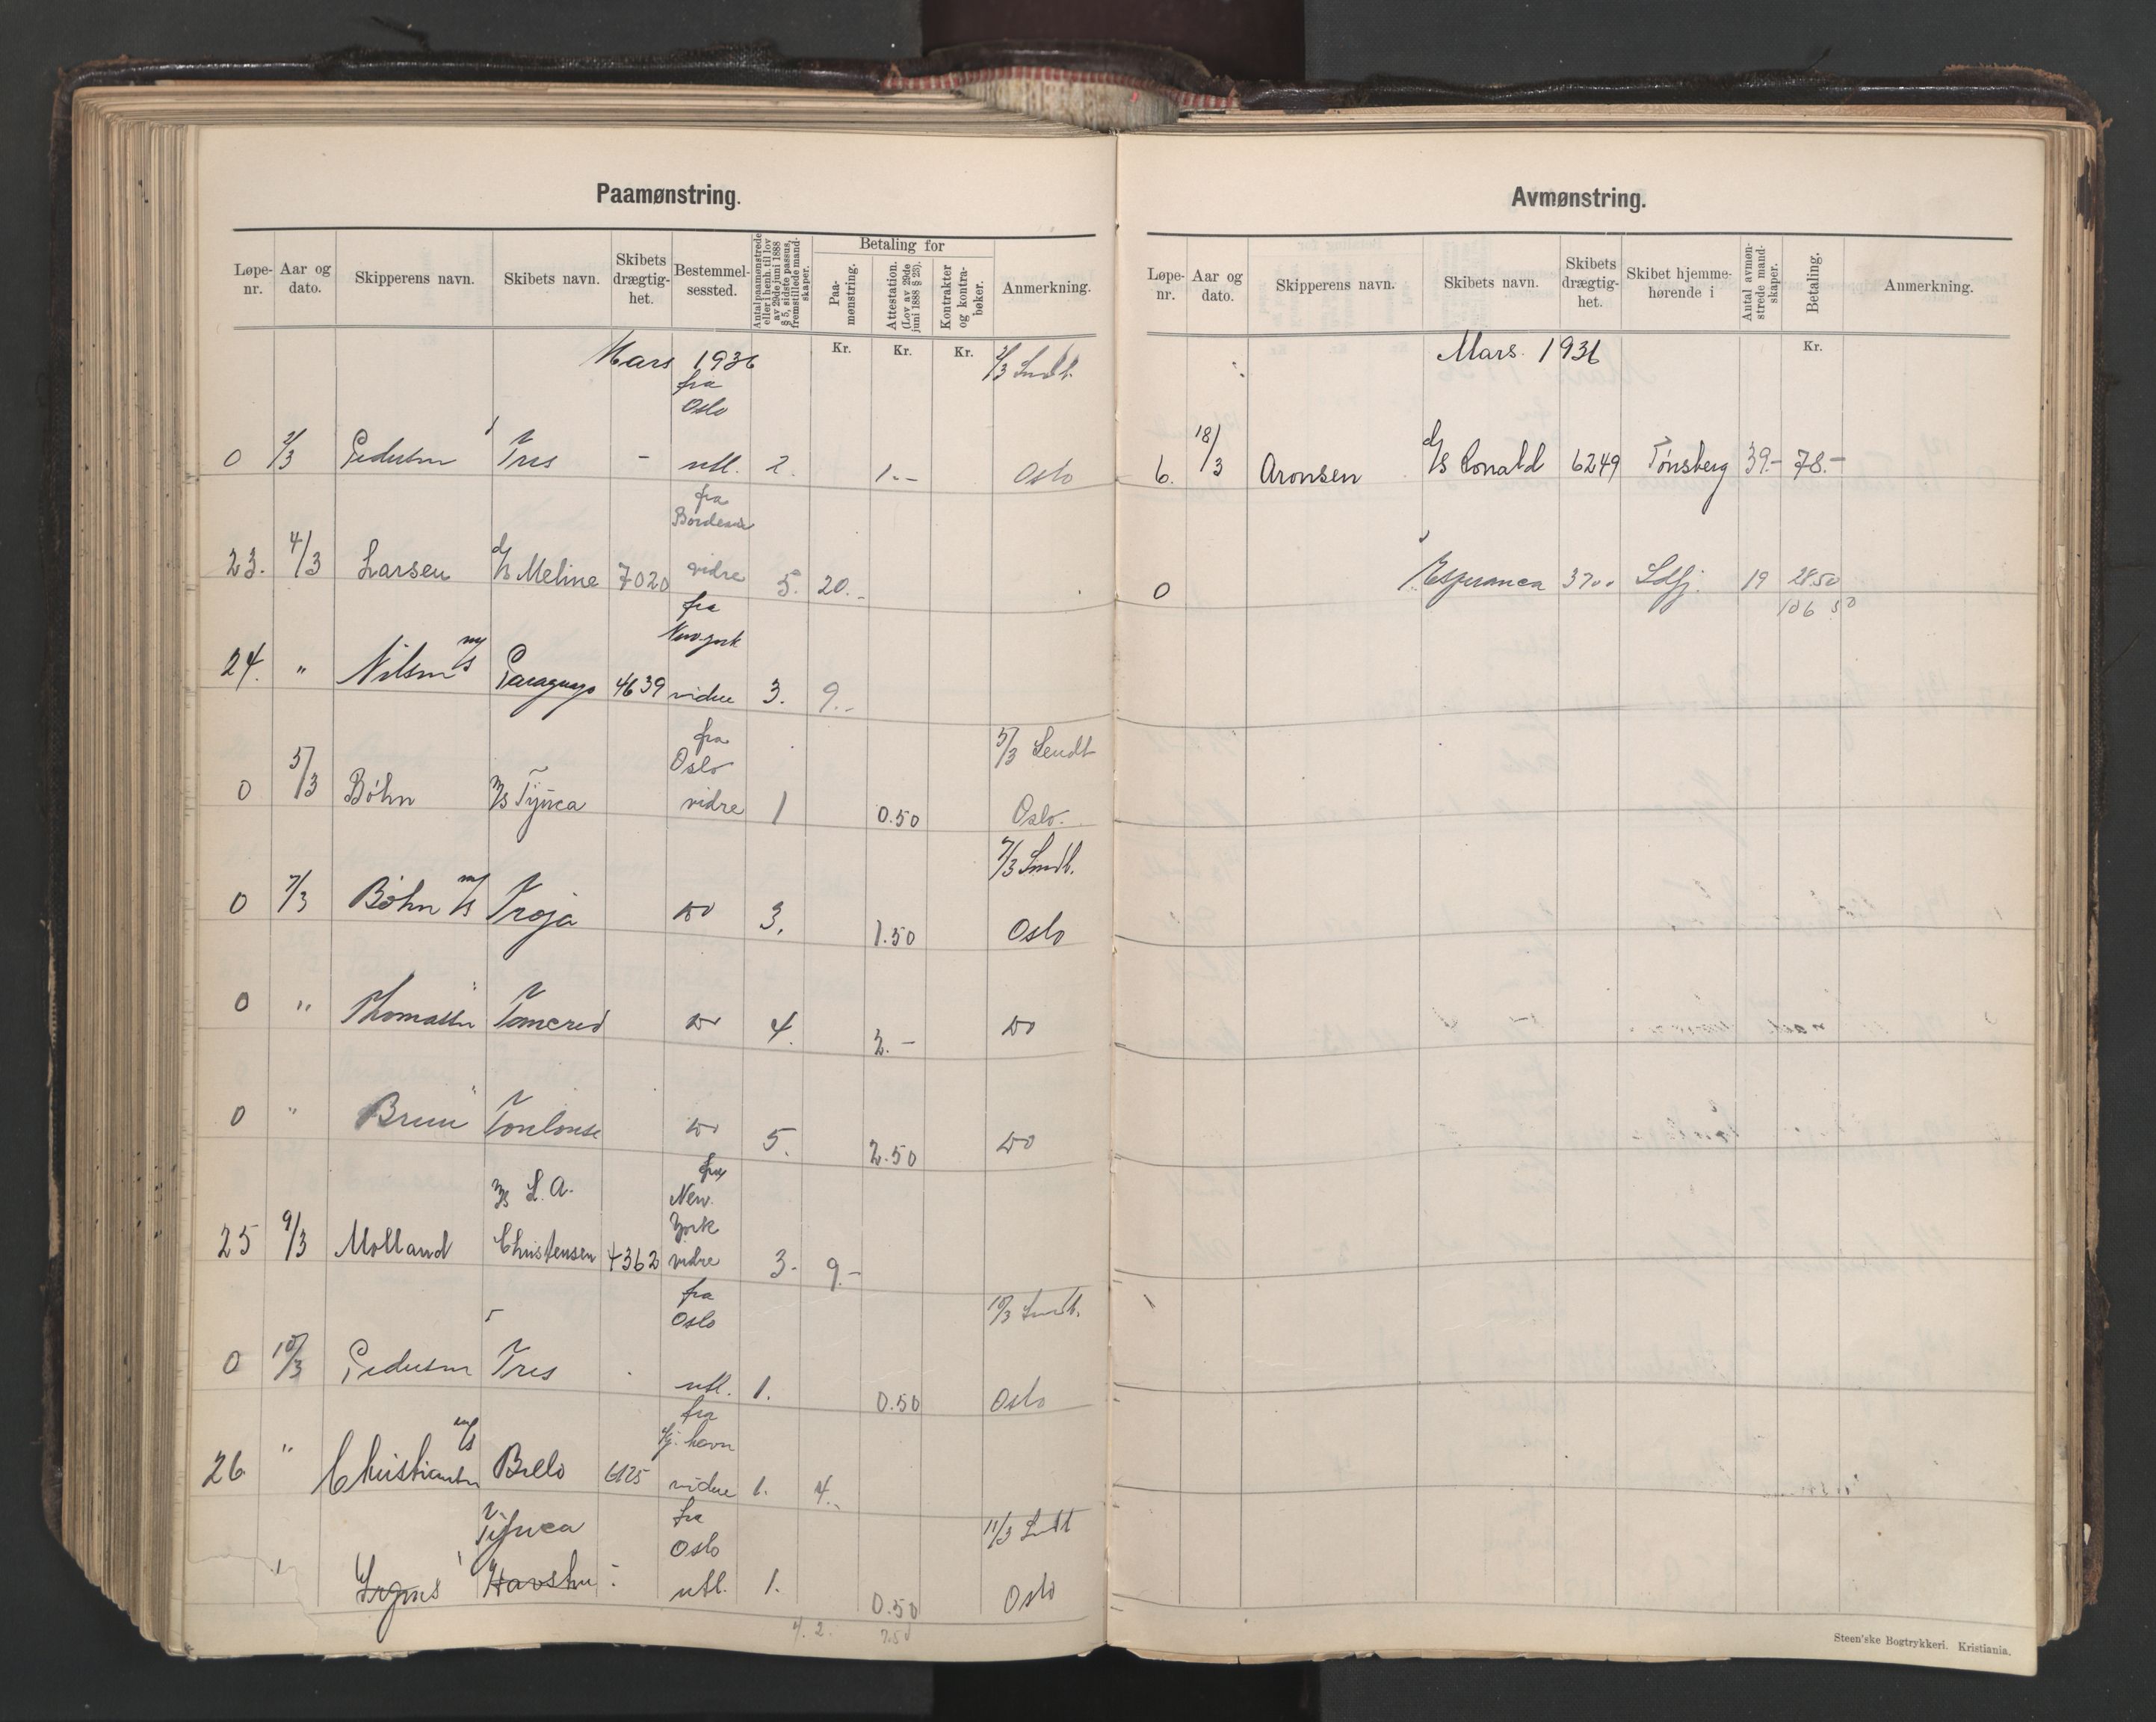 Paamønstring.
Løpe-nr. Aar og dato. Skipperens navn. Skibets navn. Skibets drægtig-het. Bestemmel-sessted. Antal paamønstrede eller i henh. til lov av 29de juni 1888 § 5, sidste passus, fremstillede mand-skaper. Betaling for Paa-mønstring. Attestation. (Lov av 29de juni 1888 § 23). Kontrakter og kontra-bøker. Anmerkning.
Mars 1936 Kr. Kr. Kr. 2/3
fra
Oslo
0 2/3 Pedersen Tres - utl. 2. 1.- Oslo
fra
Bordeaux
23. 4/3 Larsen d/s Meline 7020 vidre 5. 20.-
fra
New-york
24. " Nilsen m/s Paraguay 4639 vidre 3. 9.-
fra
Oslo 5/3 Sendt
0 5/3 Bøhn m/s Tijuca vidre 1 0.50 Oslo.
7/3 Sendt.
0 7/3 Bøhn m/s Troja do 3. 1.50 Oslo
0 " Thomassen " Tancred do 4. 2.- do
0 " Bruu " Toulouse do 5. 2.50 do
m/s L. A. fra
New.
York
25 9/3 Molland Christensen 4362 vidre 3. 9.-
fra
Oslo 10/3 Sendt.
0 10/3 Pedersen Tres utl. 1. 0.50 Oslo
fra
Kj.havn
26 " Christiansen m/s Brelo 6125 vidre 1. 4.-
Tijuca fra
Oslo 11/3 Sendt
utl. 1. 0.50 Oslo
4. 2. 7.50
Avmønstring.
Løpe-nr. Aar og dato. Skipperens navn. Skibets navn. Skibets drægtig-het. Skibet hjemme-hørende i Antal avmøn-strede mand-skaper. Betaling. Anmerkning.
Mars. 1936 Kr.
6. 18/3 Aronsen d/s Ronald 6249 Tønsberg 39.- 78.-
0 Esperanca 3700 Ldfj. 19 28.50
106 50
Steen'ske Bogtrykkeri. Kristiania.